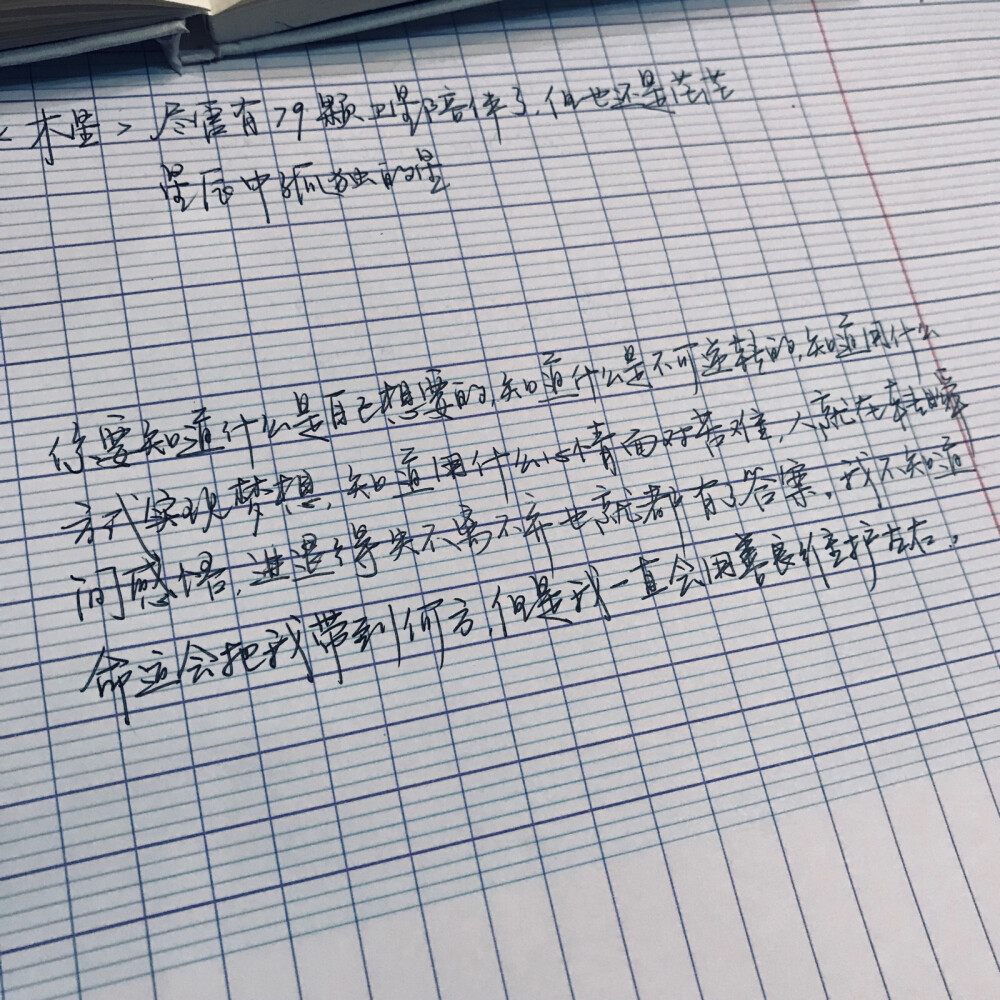 <木星> 尽管有79颗卫星陪伴了,但也还是茫茫
星辰中孤独的星
你要知道什么是自己想要的,知道什么是不可逆转的,知道用什么
方式实现梦想,知道用什么心情面对苦难,人就在转瞬
间感悟,进退得失不离不弃也就都有了答案。我不知道
命运会把我带到何方,但是我一直会用善良维护左右。